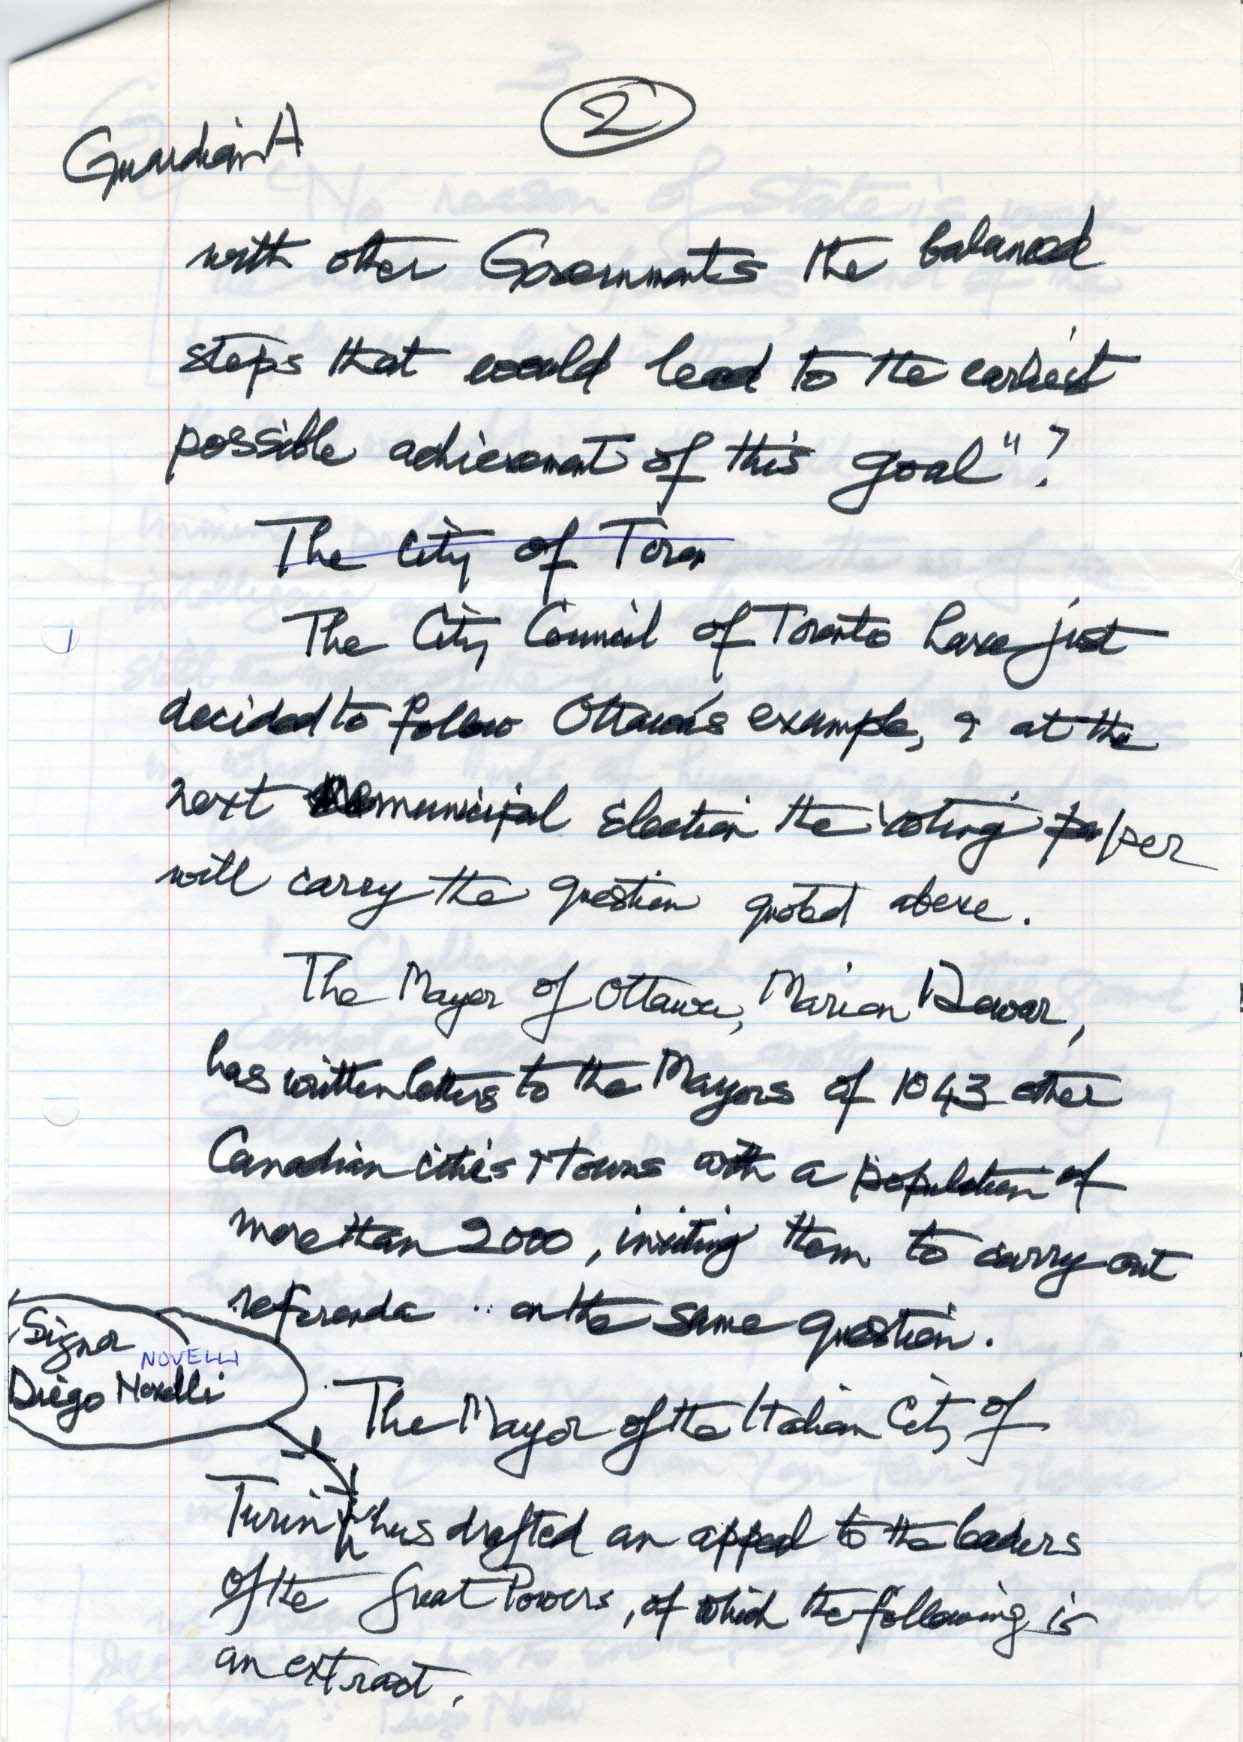 2
Guardian A
with other Governments the balanced
steps that would lead to the earliest
possible achievement of this goal"?
The City of Toron
The City Council of Toronto have just
decided to follow Ottawa's example, & at the
next municipal election the voting paper
will carry the question quoted above.
The Mayor of Ottawa, Marion Dewar,
has written letters to the Mayors of 1043 other
Canadian cities & towns with a population of
more than 2000, inviting them to carry out
referenda on the same question.
Signor
NOVELLI
Diego Novelli
The Mayor of the Italian City of
Turin has drafted an appeal to the leaders
of the Great Powers, of which the following is
an extract.